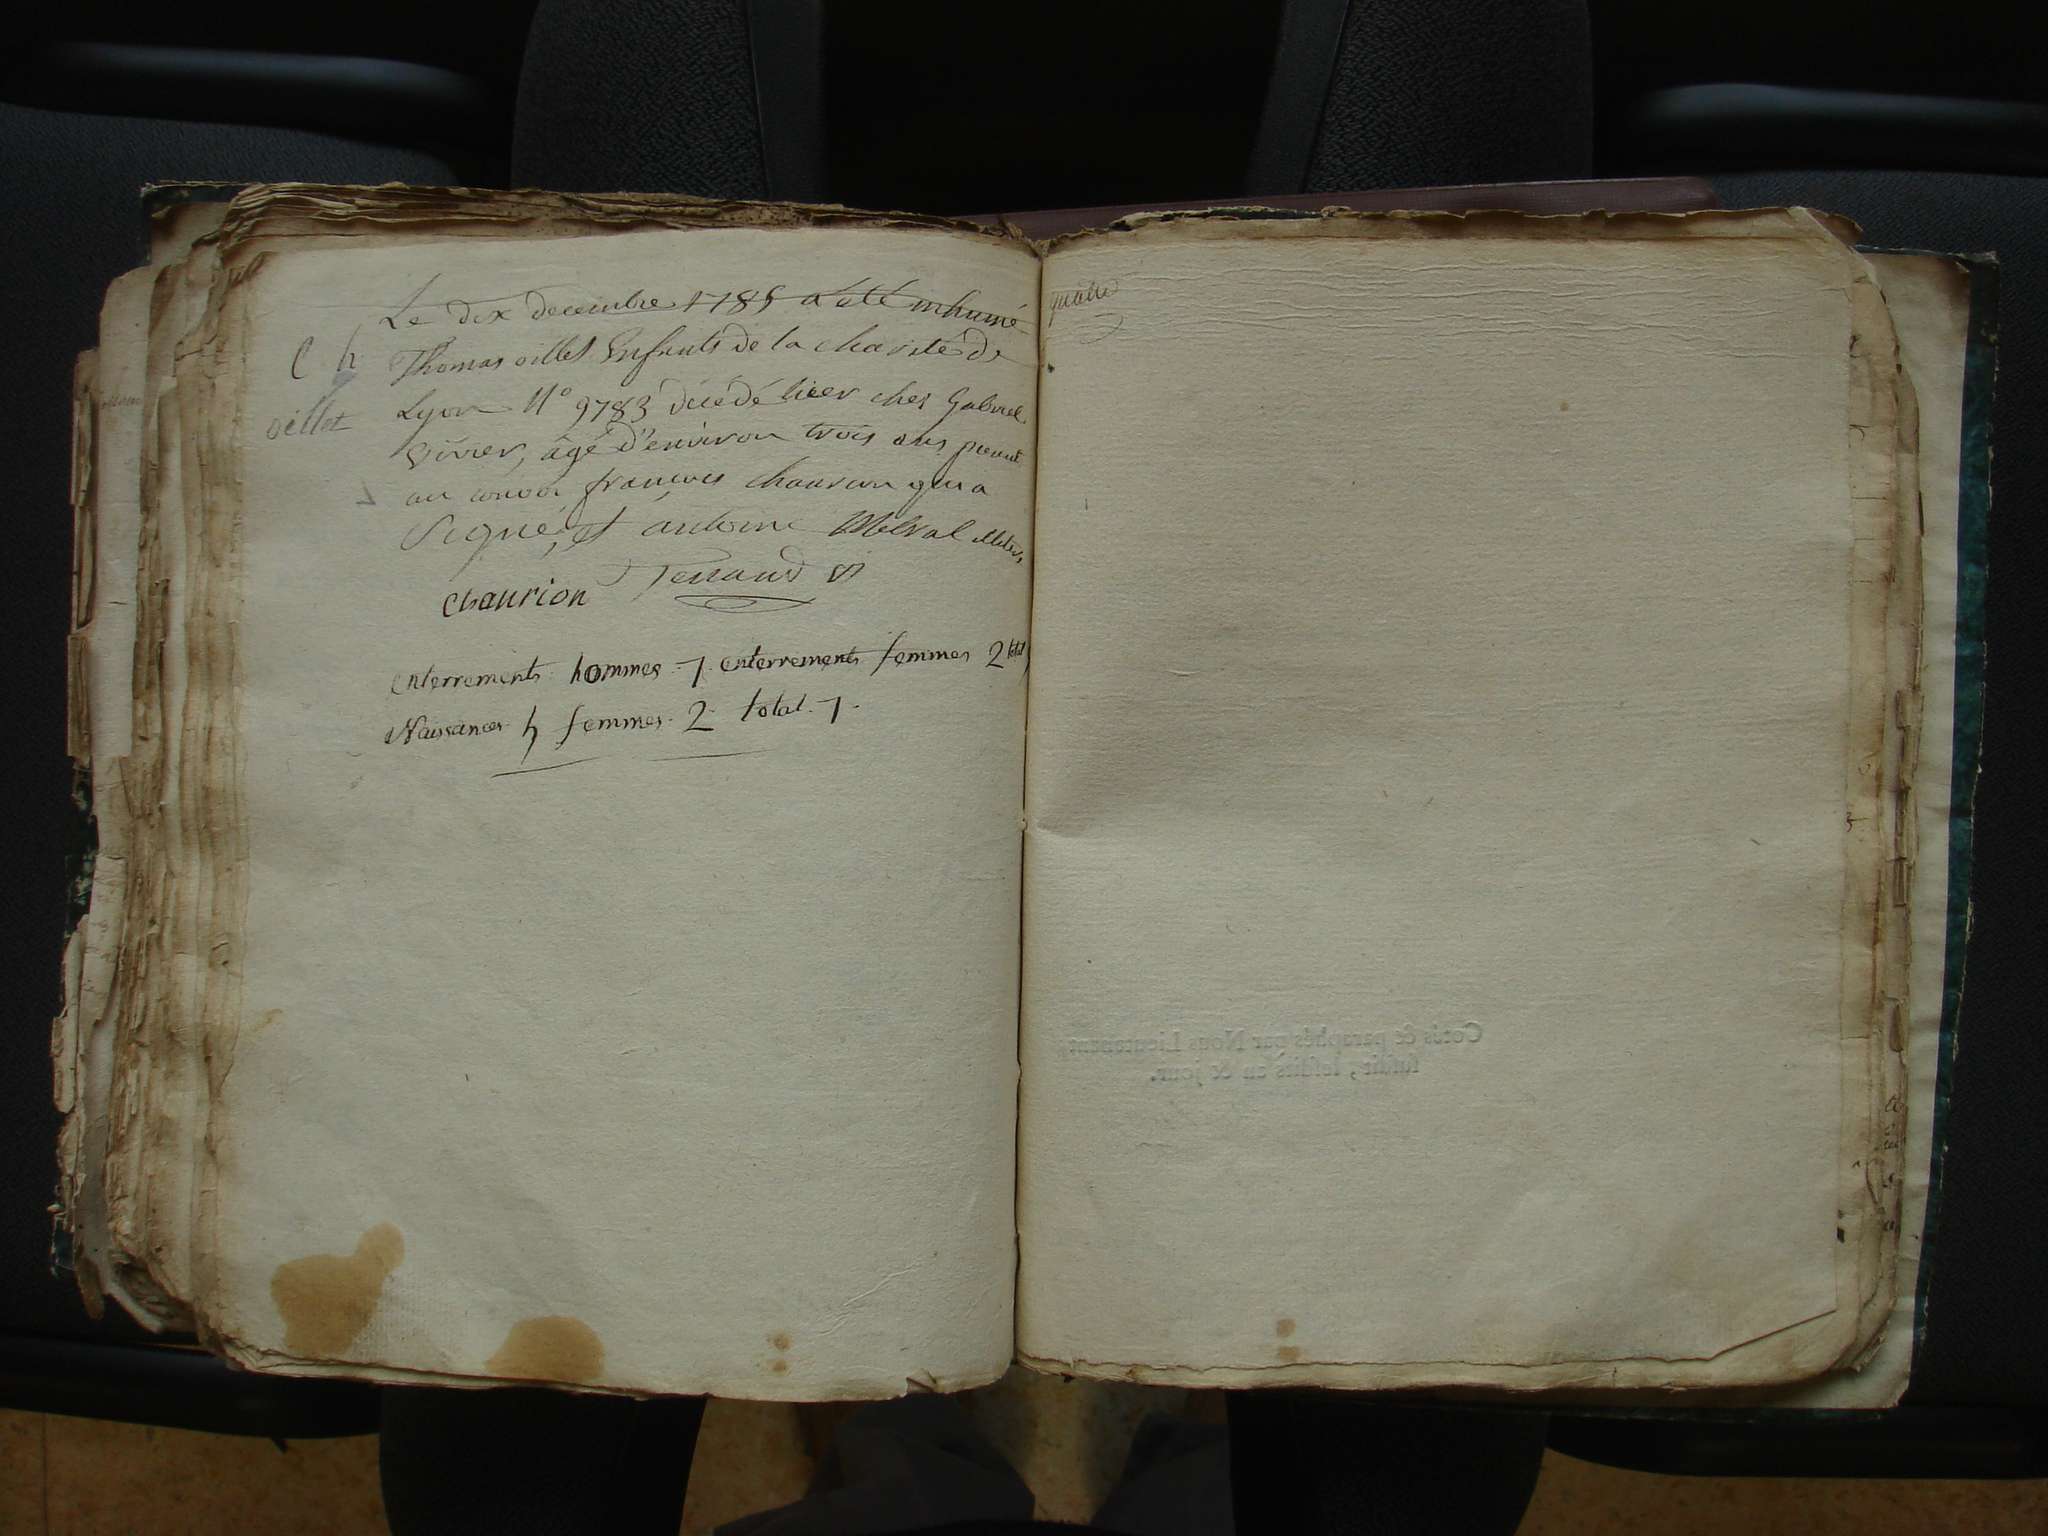 Le dix decembre 1785 a été inhumé
Thomas oillet Enfents de la charité de
Lyon N° 9783 décédé hier chez Gabriel
vivier, âgé d'environ trois ans, present
au convoi françois chaurion qui a
Signé, et antoine
chaurion
enterrements hommes 7. enterrements femmes 2 total
Naissances h femmes 2 total 7.
C h
oillet
quatre
Cotés & paraphés par Nous Lieutenant,
susdit, lesdits an & jour.